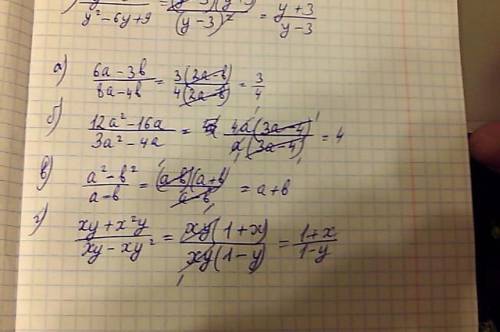 y²-6y+9 (y-3)² = y+3 / y-3
а) 6a-3b / 8a-4b = 3(2a-b) / 4(2a-b) = 3/4
б) 12a²-16a / 3a²-4a = 4a(3a-4) / a(3a-4) = 4
в) a²-b² / a-b = (a-b)(a+b) / a-b = a+b
г) xy+x²y / xy-xy² = xy(1+x) / xy(1-y) = 1+x / 1-y